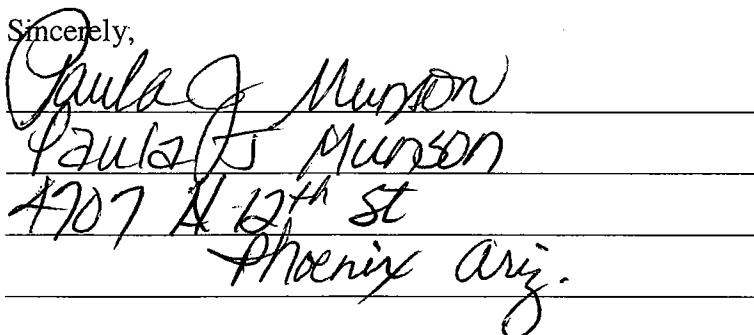 Sincerely,
Paula J Munson
Paula J Munson
4707 N 12th St
Phoenix Ariz.